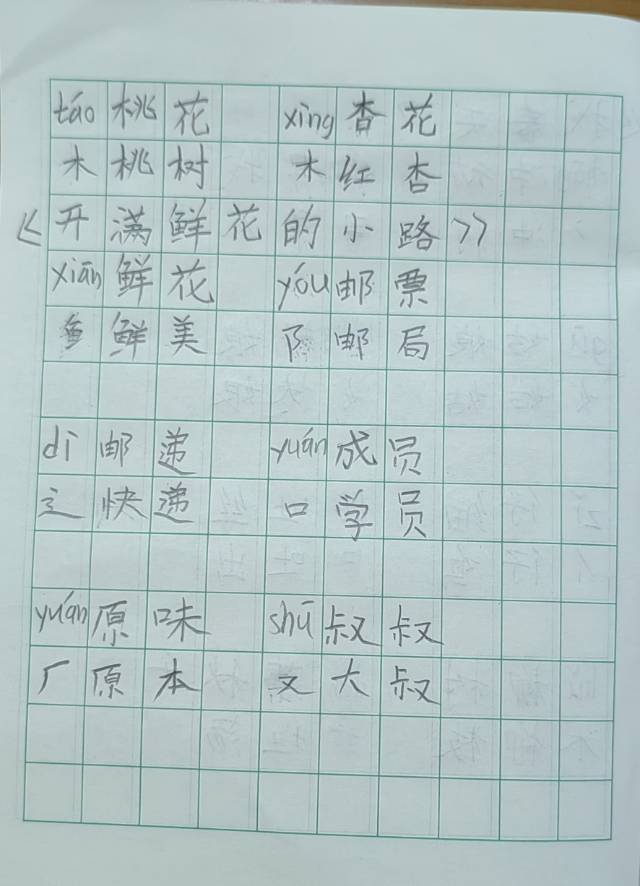 táo 桃花 xìng 杏花
木 桃树 木 红杏
《开满鲜花的小路》
xiān 鲜花 yóu 邮票
鱼 鲜美 阝 邮局
dì 邮递 yuán 成员
辶 快递 口 学员
yuán 原味 shū 叔叔
厂 原本 又 大叔